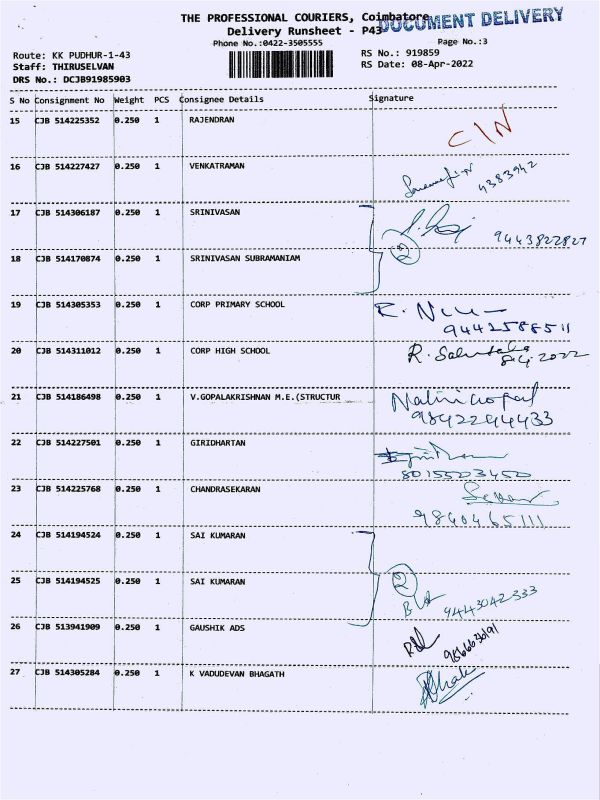 THE PROFESSIONAL COURIERS, Coimbatore
DOCUMENT DELIVERY
Delivery Runsheet - P43
Phone No.:0422-3505555
Page No.:3
Route: KK PUDHUR-1-43
RS No.: 919859
Staff: THIRUSELVAN
RS Date: 08-Apr-2022
DRS No.: DCJB91985903
S No Consignment No Weight PCS Consignee Details Signature
15 CJB 514225352 0.250 1 RAJENDRAN
C/N
16 CJB 514227427 0.250 1 VENKATRAMAN
4383942
17 CJB 514306187 0.250 1 SRINIVASAN
9443822827
2
18 CJB 514170874 0.250 1 SRINIVASAN SUBRAMANIAM
19 CJB 514305353 0.250 1 CORP PRIMARY SCHOOL
9442588511
20 CJB 514311012 0.250 1 CORP HIGH SCHOOL
21 CJB 514186498 0.250 1 V.GOPALAKRISHNAN M.E.(STRUCTUR
Nalini Gopal
9842294433
22 CJB 514227501 0.250 1 GIRIDHARTAN
8015523450
23 CJB 514225768 0.250 1 CHANDRASEKARAN
9840465111
24 CJB 514194524 0.250 1 SAI KUMARAN
2
25 CJB 514194525 0.250 1 SAI KUMARAN
9443042333
26 CJB 513941909 0.250 1 GAUSHIK ADS
27 CJB 514305284 0.250 1 K VADUDEVAN BHAGATH